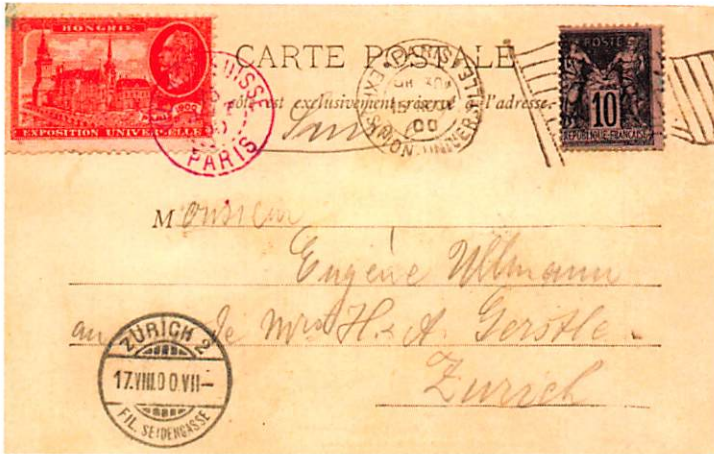 HONGRIE
PARIS 1900
EXPOSITION UNIVERSELLE
SUISSE
PARIS
CARTE POSTALE
côté est exclusivement réservé à l'adresse.
Suisse
PARIS
00
EXPOSITION UNIVERSELLE
POSTE
10
REPUBLIQUE FRANÇAISE
Monsieur
Eugène Ullmann
de Mrs H. & A. Gerstle
Zurich
ZÜRICH 2
17.VIII.00.VII–
FIL. SEIDENGASSE